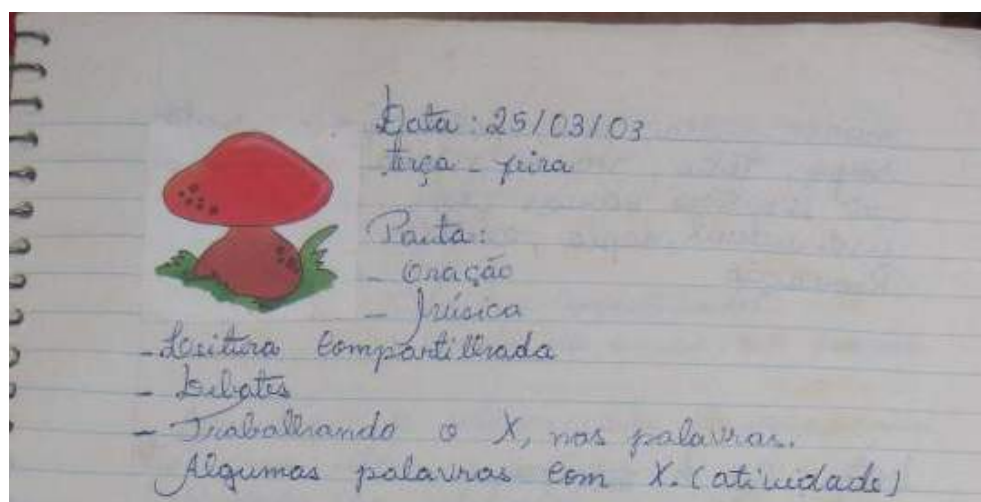 Data: 25/03/03
terça - feira
Pauta:
- Oração
- Música
- Leitura Compartilhada
- Debates
- Trabalhando o X, nas palavras.
Algumas palavras com X. (atividade)